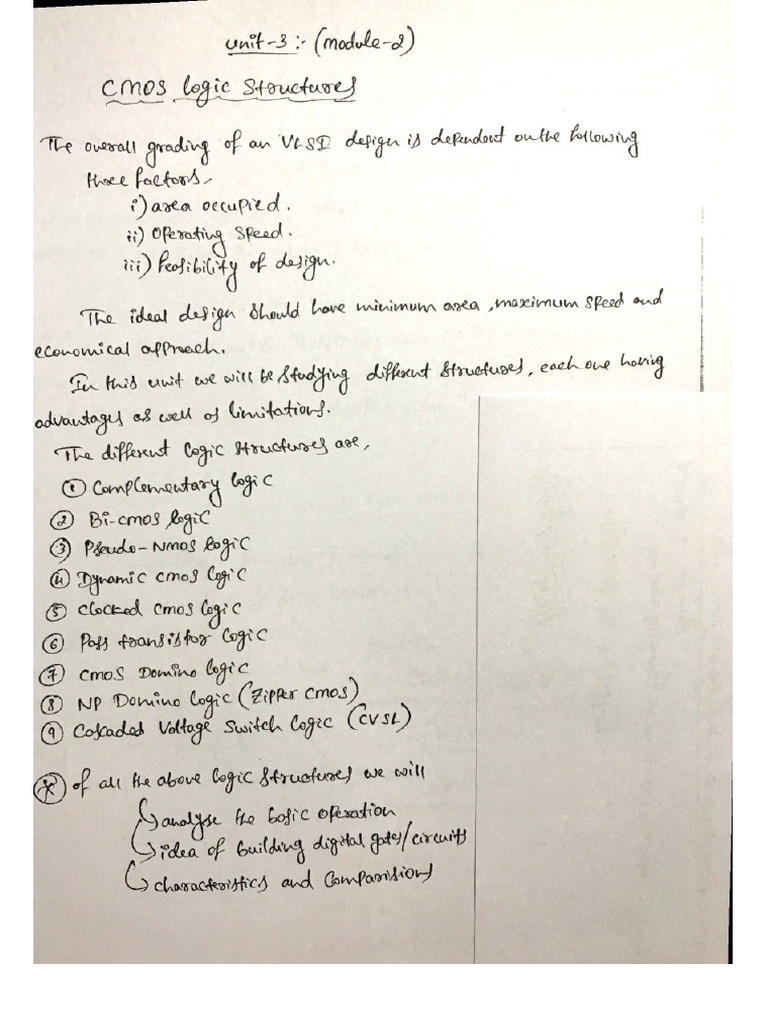 Unit-3 :- (Module-2)
CMOS Logic Structures
The overall grading of an VLSI design is dependent on the following
three factors,
i) area occupied.
ii) Operating Speed.
iii) Feasibility of design.
The ideal design should have minimum area, maximum speed and
economical approach.
In this unit we will be studying different structures, each one having
advantages as well as limitations.
The different logic structures are,
① Complementary logic
② Bi-CMOS logic
③ Pseudo-NMOS logic
④ Dynamic CMOS logic
⑤ Clocked CMOS logic
⑥ Pass transistor logic
⑦ CMOS Domino logic
⑧ NP Domino logic (Zipper CMOS)
⑨ Cascaded Voltage Switch Logic (CVSL)
Of all the above logic structures we will
↳ analyse the basic operation
↳ idea of building digital gates/circuits
↳ characteristics and Comparisions